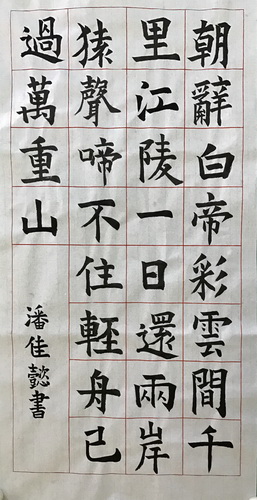 朝辭白帝彩雲間千
里江陵一日還兩岸
猿聲啼不住輕舟已
過萬重山
潘佳懿書